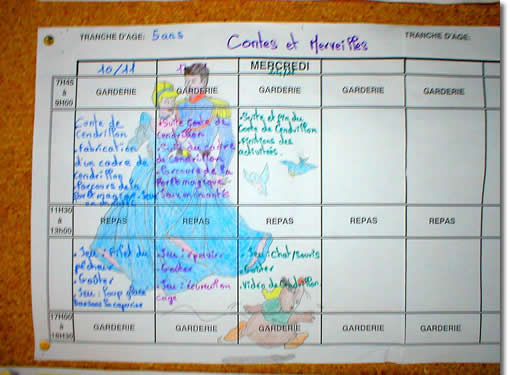 TRANCHE D'AGE: 5 ans
Contes et Merveilles
TRANCHE D'AGE:
10/11
MERCREDI
7H45 à 9H00
GARDERIE GARDERIE GARDERIE GARDERIE GARDERIE
Conte de
Cendrillon
. Fabrication
d'un cadre de
Cendrillon
. Parcours de la
. Suite conte de
Cendrillon
. Suite du cadre
de Cendrillon
. Parcours de la
. Suite et fin du
Conte de Cendrillon
. Finitions des
activités.
11H30 à 13H00
REPAS REPAS REPAS REPAS REPAS
. Jeu: Filet du
pêcheur
. Goûter
. Jeu:
. Jeu:
. Goûter
. Jeu: écureuil en
cage
. Jeu: chat/souris
. Goûter
. Vidéo de Cendrillon
17H00 à
GARDERIE GARDERIE GARDERIE GARDERIE GARDERIE